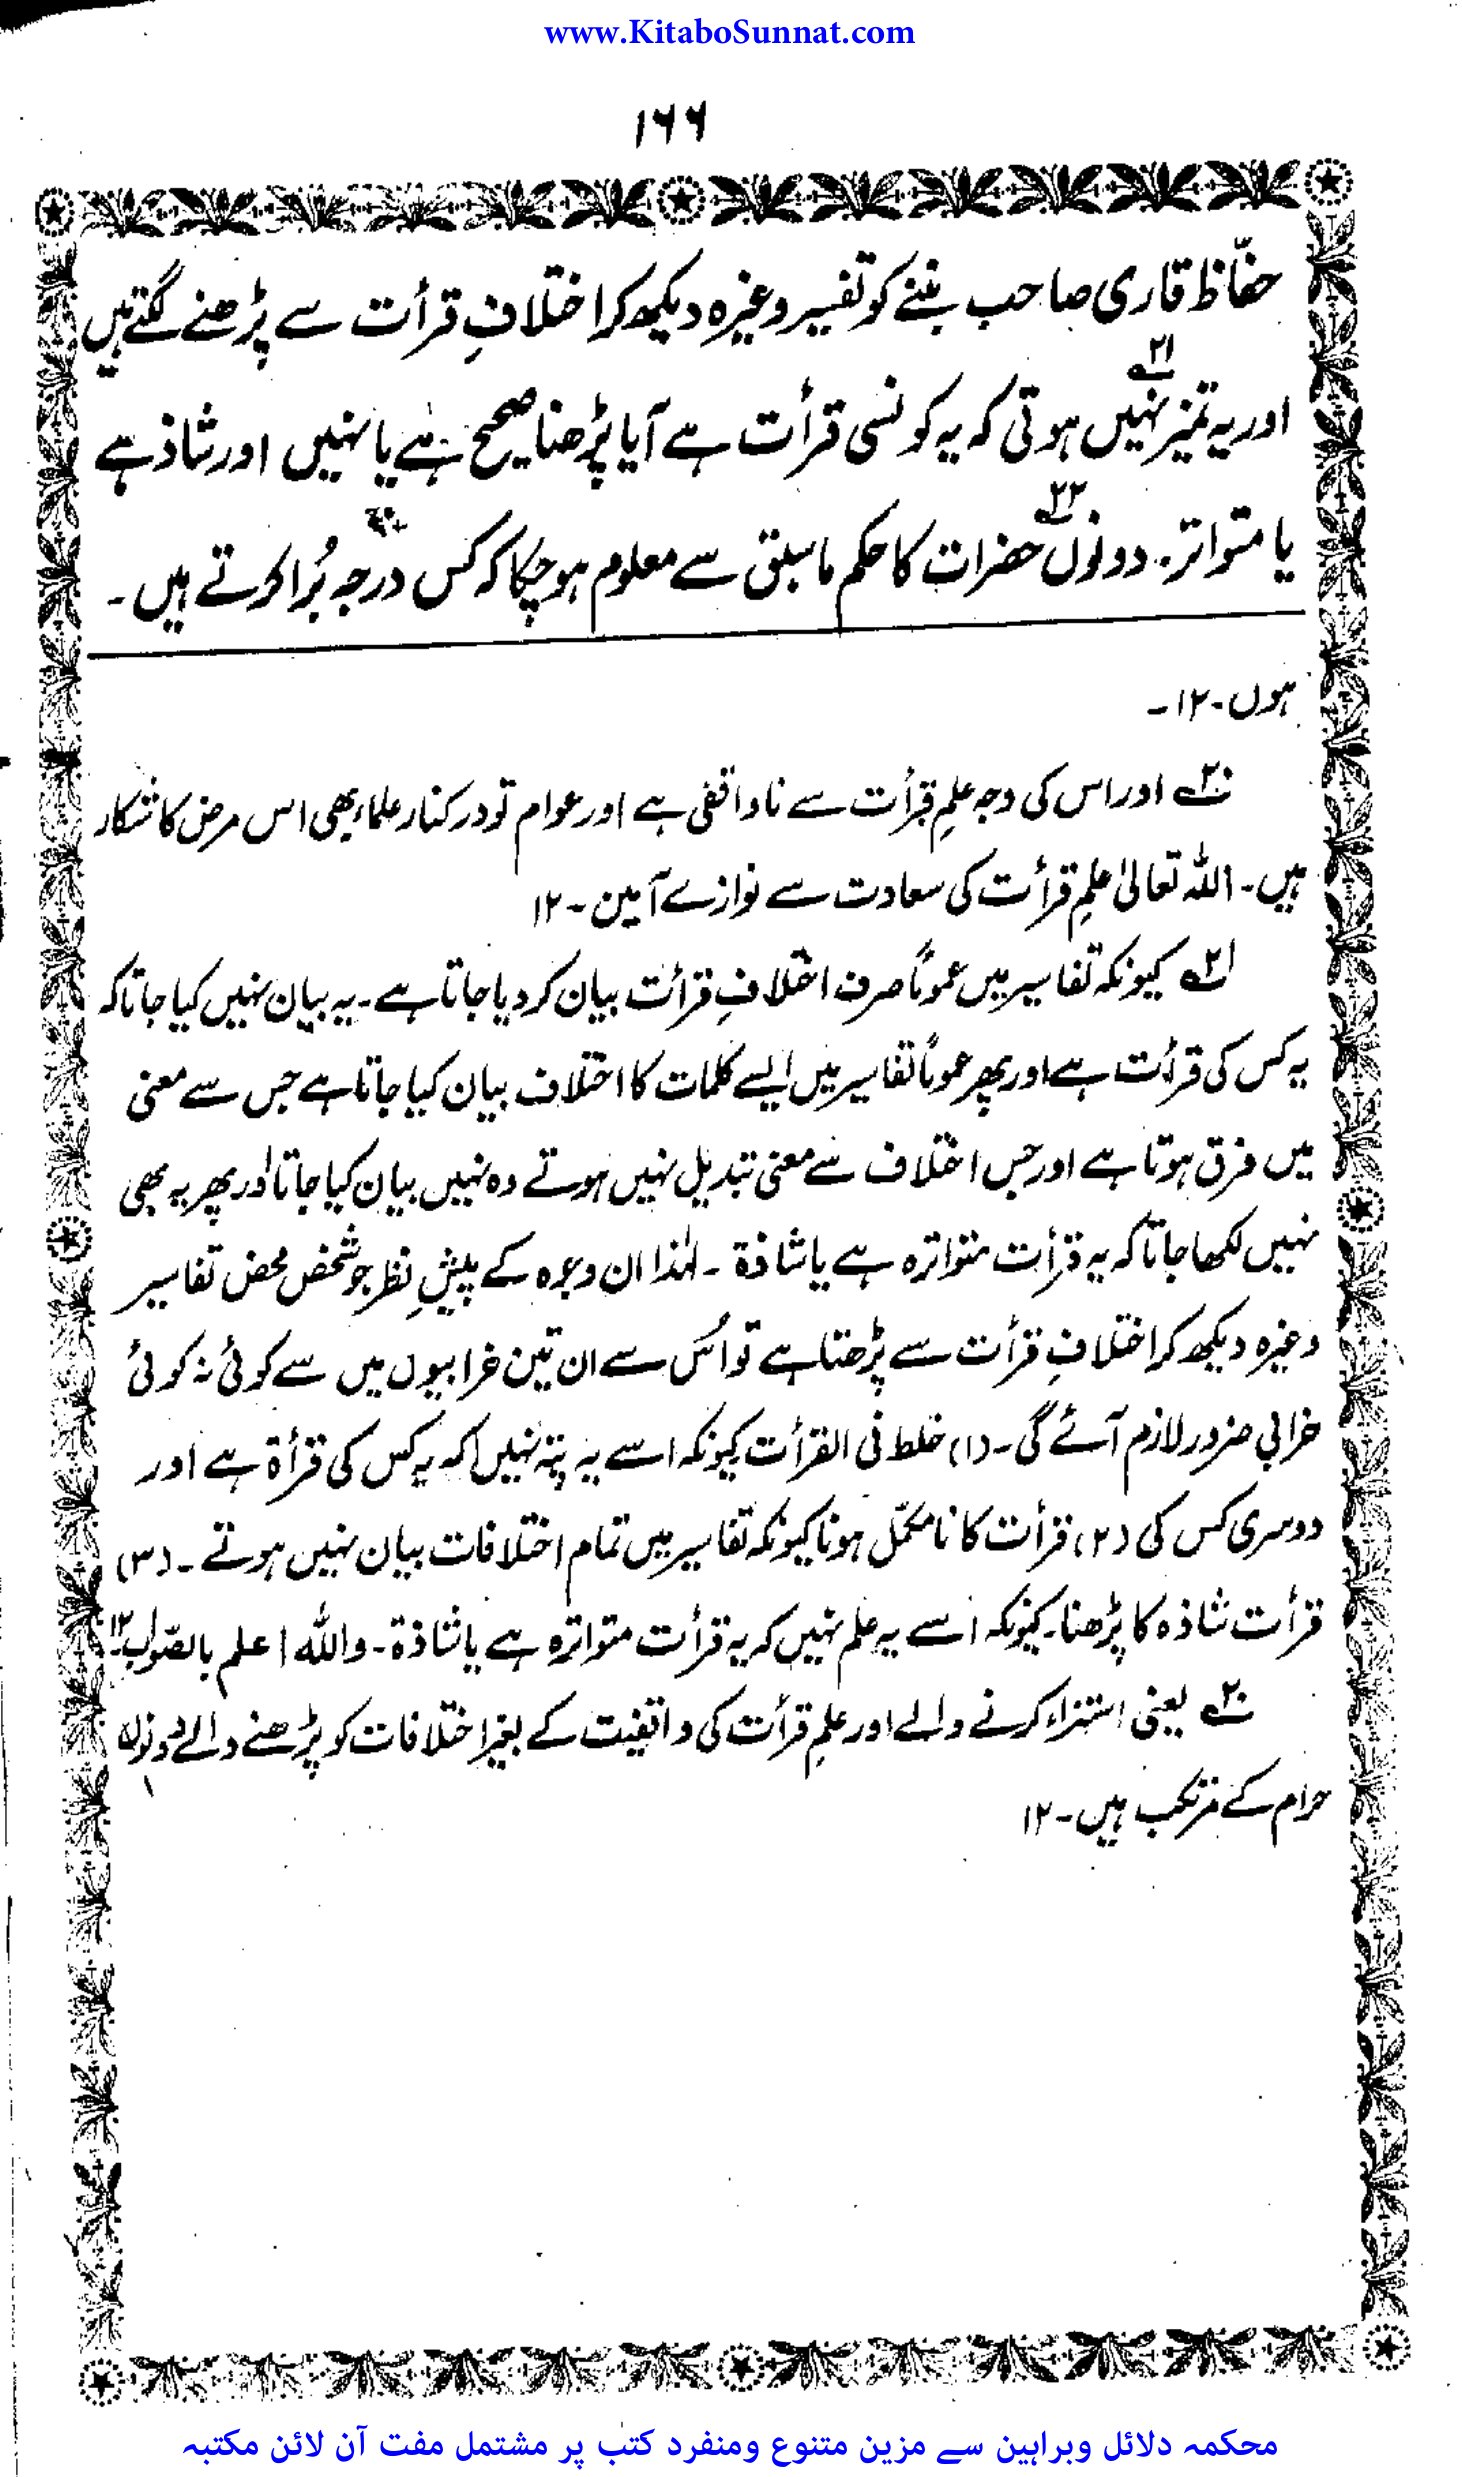 www.KitaboSunnat.com
۱۶۶
حفّاظ قاری صاحب بننے کو تفسیر وغیرہ دیکھ کر اختلافِ قرأت سے پڑھنے لگتے ہیں
اور یہ تمیز نہیں ہوتی ۲۱؎ کہ یہ کونسی قرأت ہے آیا پڑھنا صحیح ہے یا نہیں اور شاذ ہے
یا متواتر. دونوں ۲۲؎ حضرات کا حکم ماسبق سے معلوم ہو چکا کہ کس درجہ بُرا کرتے ہیں۔
ہوں۔۱۲۔
۲۰؎ اور اس کی وجہ علمِ قرأت سے ناواقفی ہے اور عوام تو درکنار علماء بھی اس مرض کا شکار
ہیں۔ اللہ تعالیٰ علمِ قرأت کی سعادت سے نوازے آمین۔ ۱۲
۲۱؎ کیونکہ تفاسیر میں عموماً صرف اختلافِ قرأت بیان کر دیا جاتا ہے۔ یہ بیان نہیں کیا جاتا کہ
یہ کس کی قرأت ہے اور پھر عموماً تفاسیر میں ایسے کلمات کا اختلاف بیان کیا جاتا ہے جس سے معنی
میں فرق ہوتا ہے اور جس اختلاف سے معنی تبدیل نہیں ہوتے وہ نہیں بیان کیا جاتا اور پھر یہ بھی
نہیں لکھا جاتا کہ یہ قرأت متواترہ ہے یا شاذۃ ۔ لہٰذا ان وجوہ کے پیشِ نظر جو شخص محض تفاسیر
وغیرہ دیکھ کر اختلافِ قرأت سے پڑھتا ہے تو اُس سے ان تین خرابیوں میں سے کوئی نہ کوئی
خرابی ضرور لازم آئے گی۔ (۱) خلط فی القرأت کیونکہ اسے یہ پتہ نہیں کہ یہ کس کی قرأۃ ہے اور
دوسری کس کی (۲) قرأت کا نامکمّل ہونا کیونکہ تفاسیر میں تمام اختلافات بیان نہیں ہوتے ۔ (۳)
قرأت شاذہ کا پڑھنا۔ کیونکہ اسے یہ علم نہیں کہ یہ قرأت متواترہ ہے یا شاذۃ۔ واللہ اعلم بالصّواب ۱۲
۲۰؎ یعنی استہزاء کرنے والے اور علمِ قرأت کی واقفیت کے بغیر اختلافات کو پڑھنے والے دونوں
حرام کے مرتکب ہیں۔ ۱۲
محکمہ دلائل وبراہین سے مزین متنوع ومنفرد کتب پر مشتمل مفت آن لائن مکتبہ